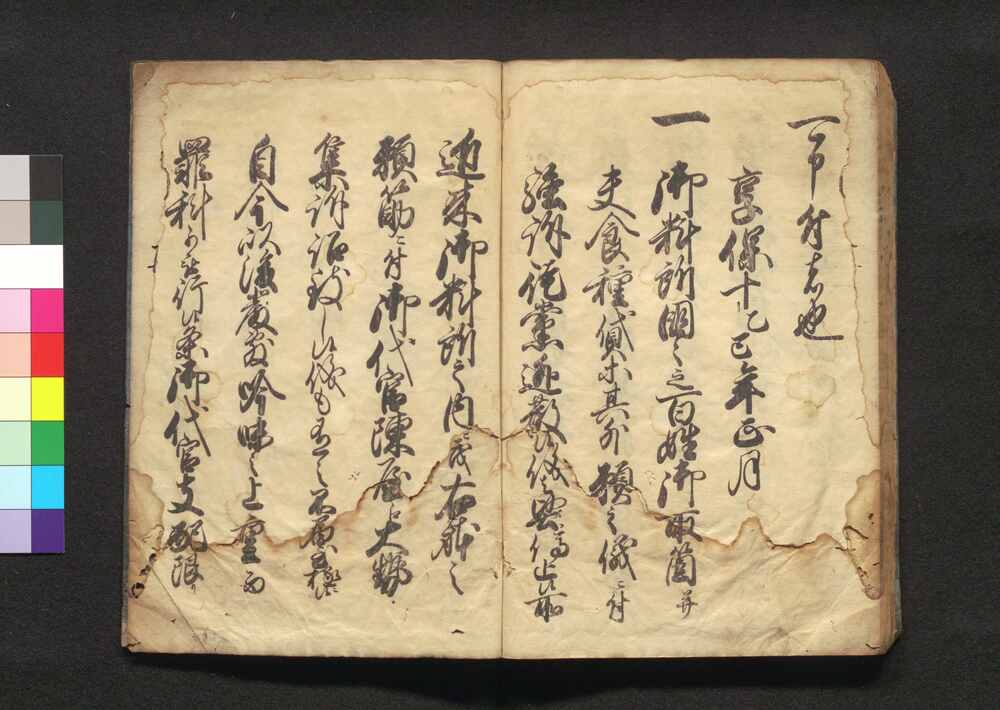 可申付者也
享保十乙巳年正月
一 御料所国々之百姓御取箇并
夫食種貸等其外願之儀ニ付
強訴徒党逃散候儀堅停止候所
近来御料所之内ニ茂右躰之
願筋ニ付御代官陳屋江大勢
集訴訟致し候儀も有之不届至極ニ
自今以後厳敷吟味之上重き
罪科可被行候条御代官支配限